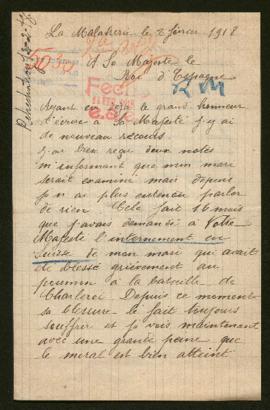 La Malaherie le 2 février 1918
A Sa Majesté le
Roi d'Espagne
Ayant eu déjà le grand honneur
d'écrire à Sa Majesté j'y ai
de nouveau recours
J'ai bien reçu deux notes
m'informant que mon mari
serait examiné mais depuis
je n'ai plus entendu parler
de rien Cela fait 16 mois
que j'avais demandé à Votre
Majesté l'internement en
Suisse de mon mari qui avait
été blessé grièvement au
poumon à la bataille de
Charleroi Depuis ce moment
sa blessure le fait toujours
souffrir et je vois maintenant
avec une grande peine que
le moral est bien atteint